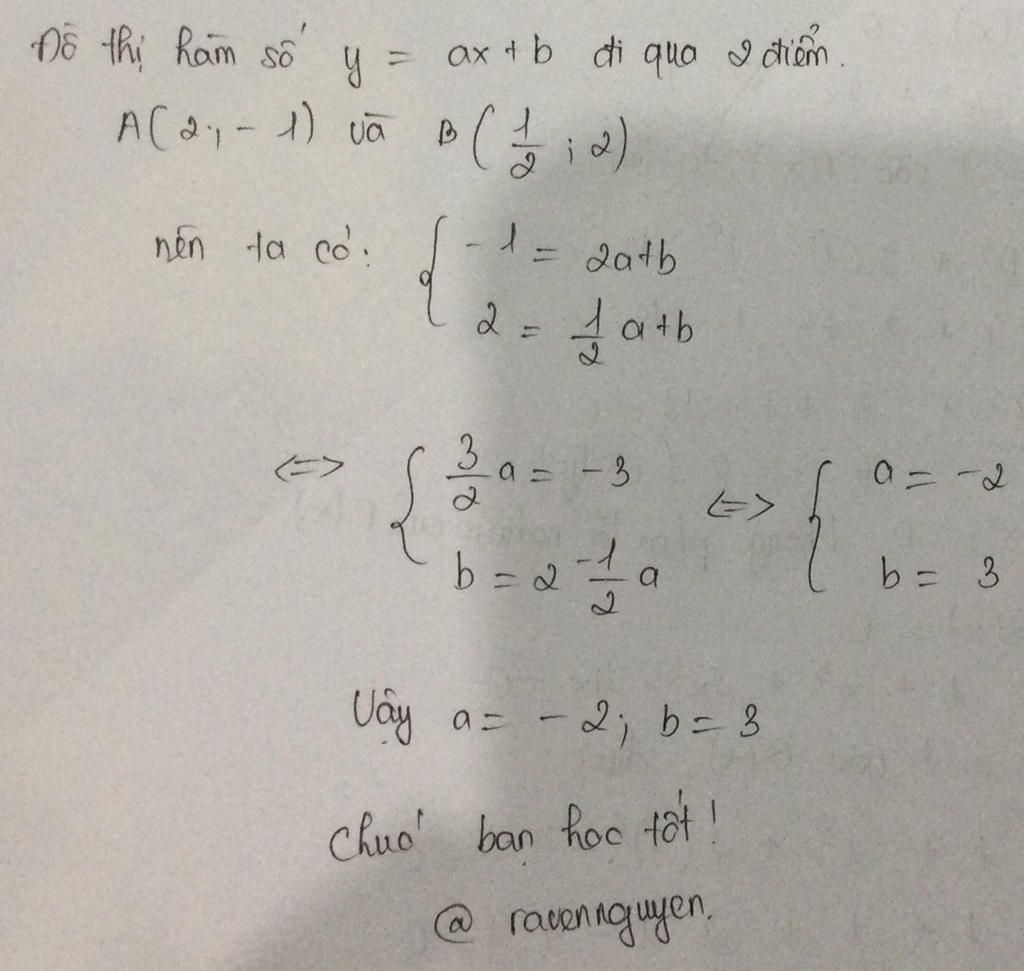 Đồ thị hàm số y = ax + b đi qua 2 điểm.
A(2; -1) và B(1/2; 2)
nên ta có: { -1 = 2a+b
2 = 1/2 a+b
<=> { 3/2 a = -3 <=> { a = -2
b = 2 - 1/2 a b = 3
Vậy a = -2; b = 3
Chuć bạn học tốt!
@ ravennguyen.